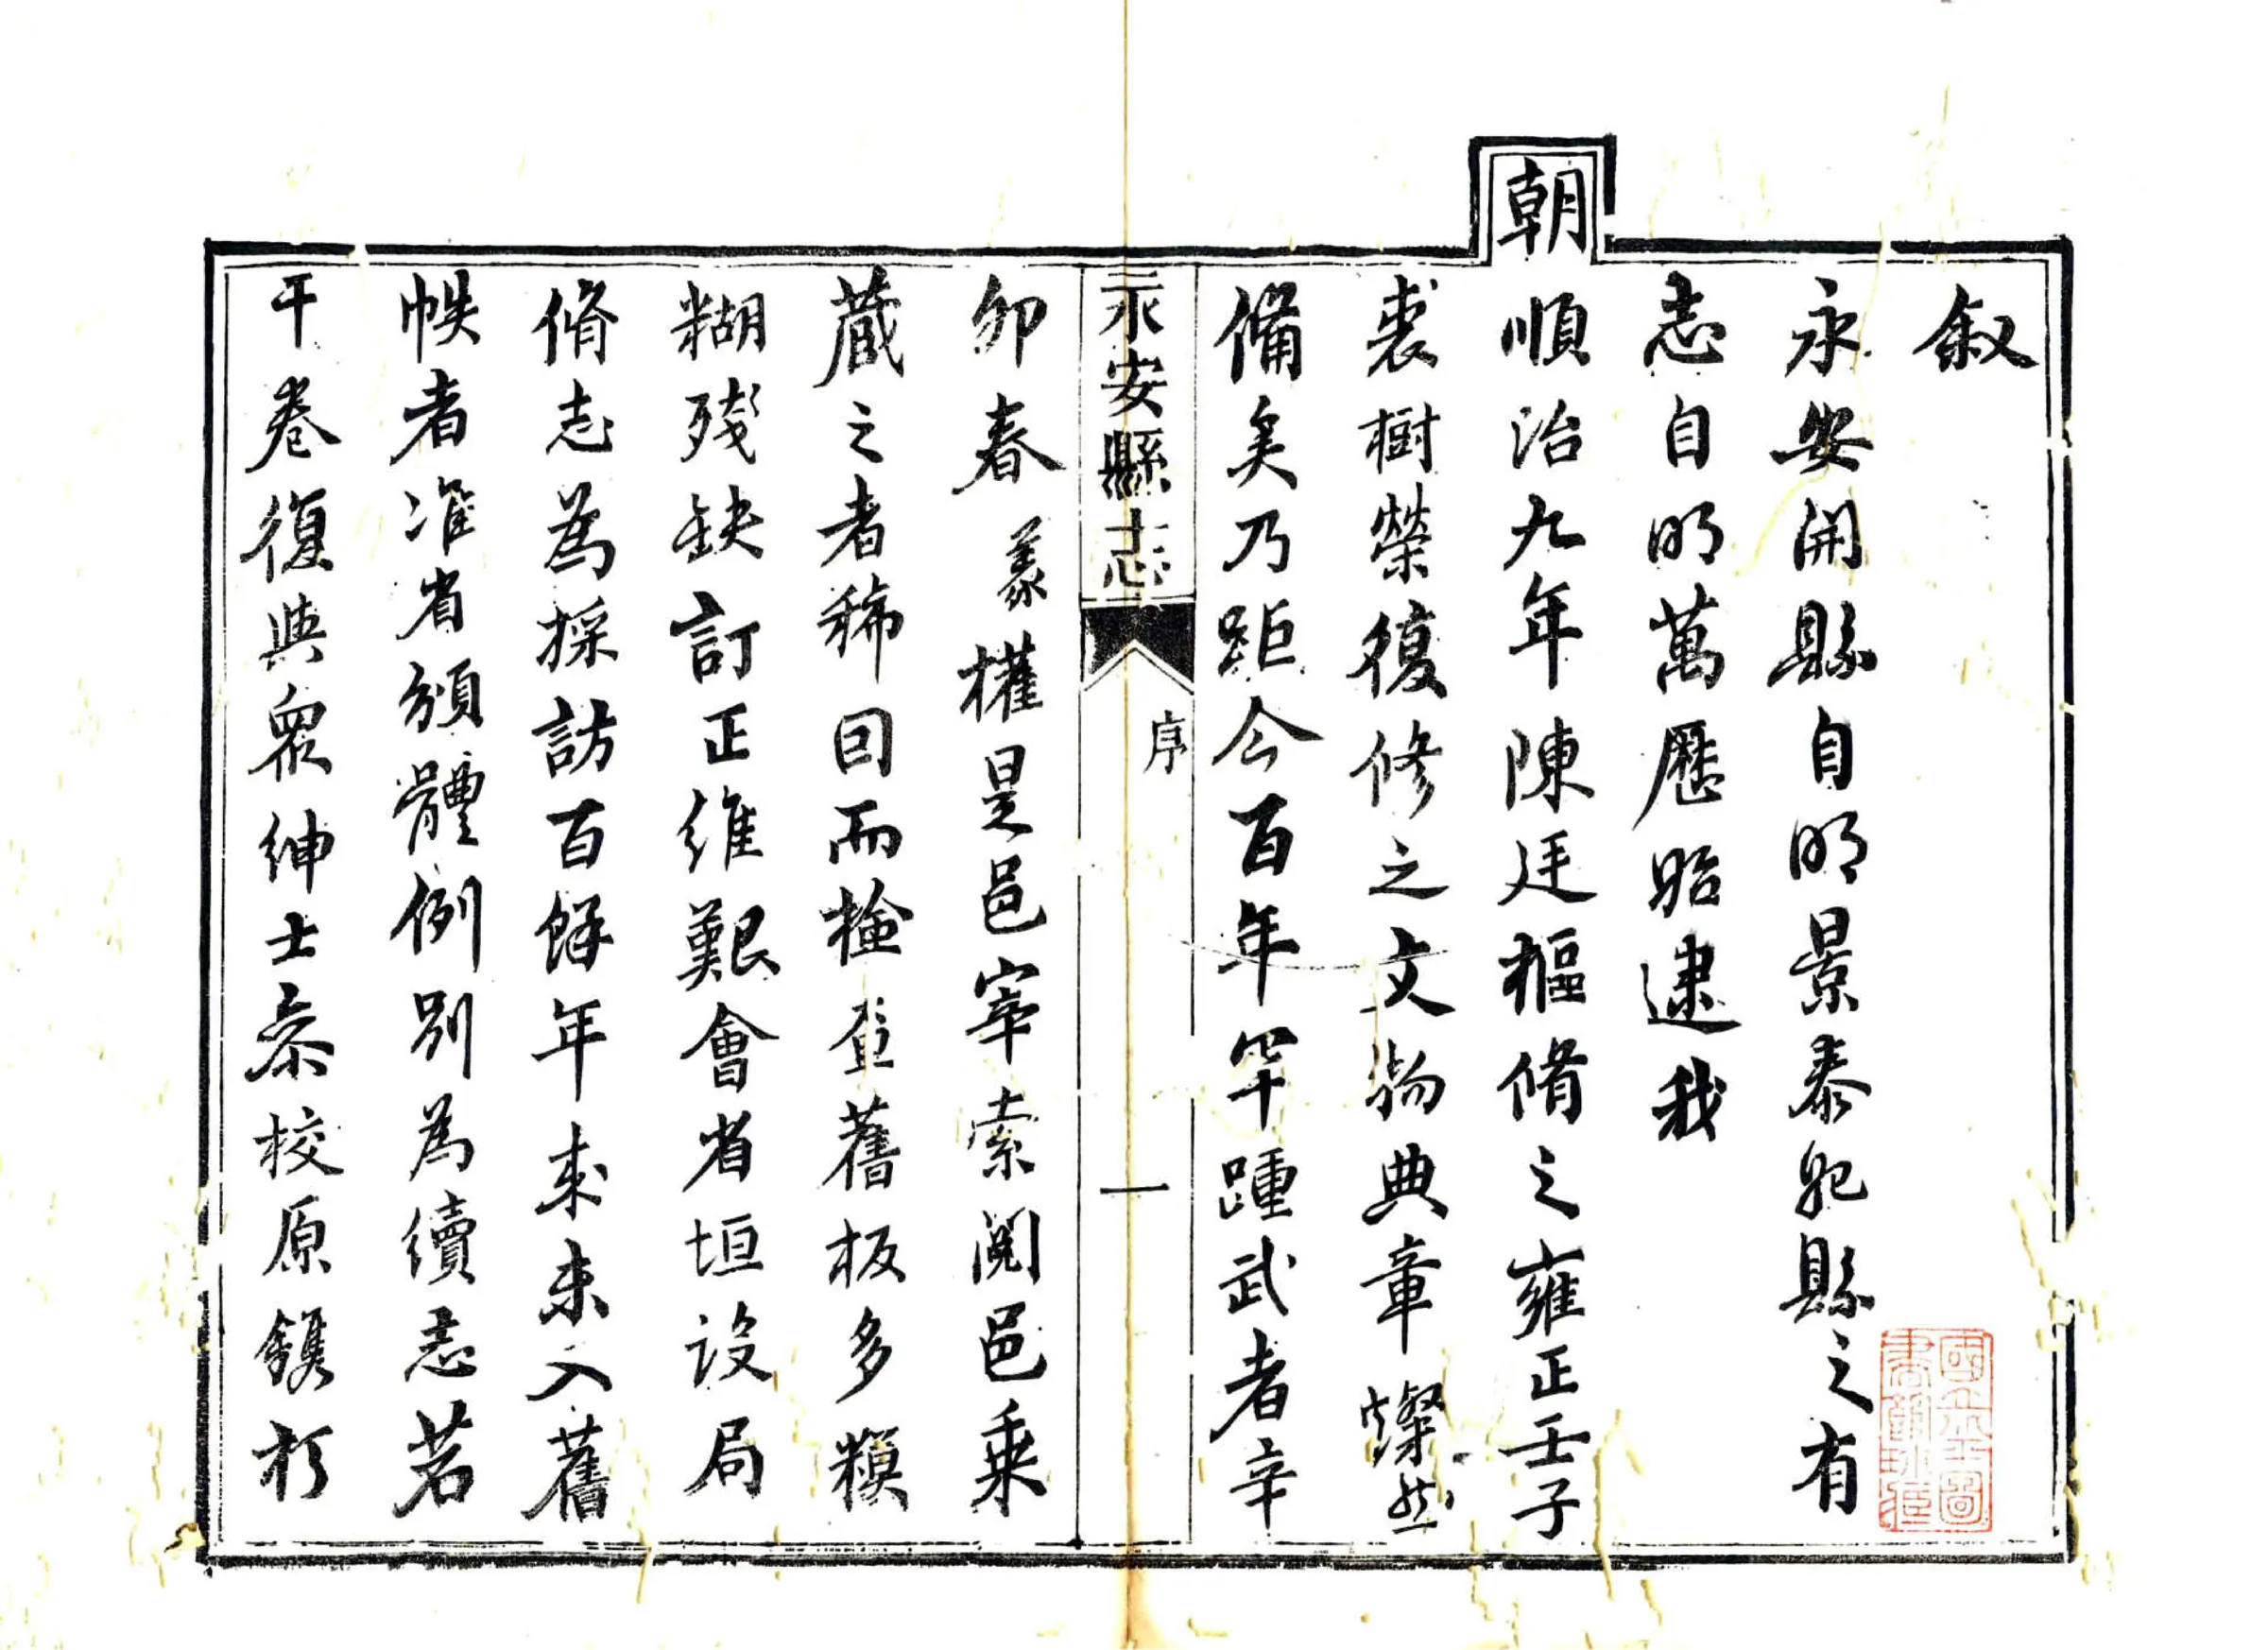 叙
永安開縣自明景泰始縣之有
志自明萬歷昉逮我
朝順治九年陳廷樞脩之雍正壬子
裘樹榮復修之文物典章燦然
備矣乃距今百年罕踵武者辛
永安縣志
序
一
卯春義權是邑宰索閱邑乘
藏之者稀因而檢查舊板多糢
糊殘缺訂正維艱會省垣設局
脩志為採訪百餘年来未入舊
帙者准省頒體例別為續志若
干卷復與衆紳士叅校原鐫於